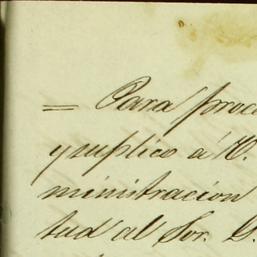 = Para proc
y suplico á V.
ministracion
tud al Sor. D.